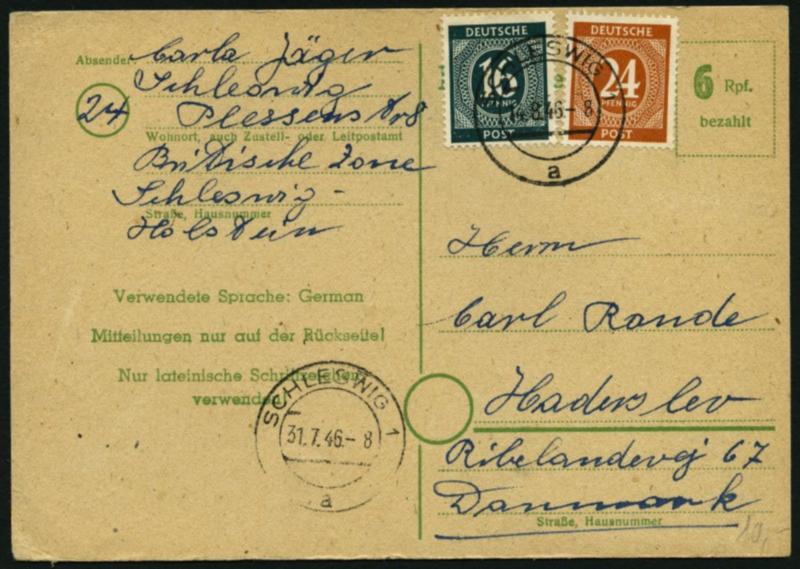 Absender Carla Jäger
Schleswig
24 Plessenstr 8
Wohnort, auch Zustell- oder Leitpostamt
Britische Zone
Schleswig-
Straße, Hausnummer
Holstein
Verwendete Sprache: German
Mitteilungen nur auf der Rückseite!
Nur lateinische Schriftzeichen
verwenden
SCHLESWIG 1
31.7.46.-8
a
DEUTSCHE
16
PFENNIG
POST
DEUTSCHE
24
PFENNIG
POST
SCHLESWIG 1
8.46.-8
a
6 Rpf.
bezahlt
Herrn
Carl Rande
Haderslev
Ribelandevej 67
Danmark
Straße, Hausnummer